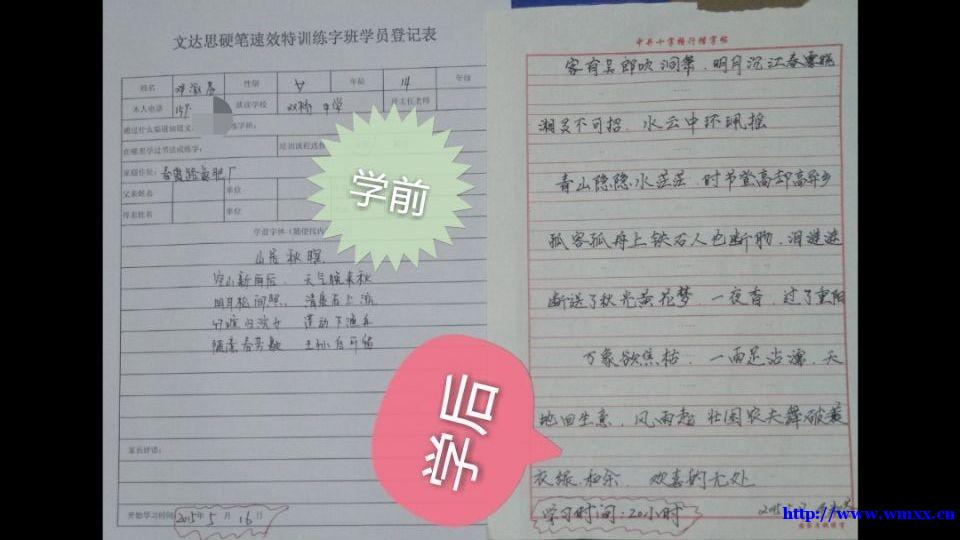 文达思硬笔速效特训练字班学员登记表
姓名 性别 女 年龄 14 年级
本人电话 159 就读学校 双桥中学 班主任老师
通过什么渠道知道文 练字班:
在哪里学过书法或练字: 是出该程选择
家庭住址:
父亲姓名 单位
母亲姓名 单位
学前字体(随便找内
山居秋暝
空山新雨后, 天气晚来秋
明月松间照, 清泉石上流
竹喧归浣女 莲动下渔舟
随意春芳歇 王孙自可留
家长评语:
开始学习时间: 2015年5月16日
学前
学后
中牛十字格行楷字帖
客有吴郎吹洞箫,明月沉江春雾晓
湘灵不可招,水云中环珮摇
青山隐隐水茫茫,时节登高却高异乡
孤客孤舟上铁石人也断肠,泪涟涟
断送了秋光黄花梦,一夜香,过了重阳
万象欲焦枯,一雨足沾濡,天
地回生意,风雨起壮图农夫舞破蓑
衣振和余,欢喜的无处
学习时间:20小时
http://www.wmxx.cn